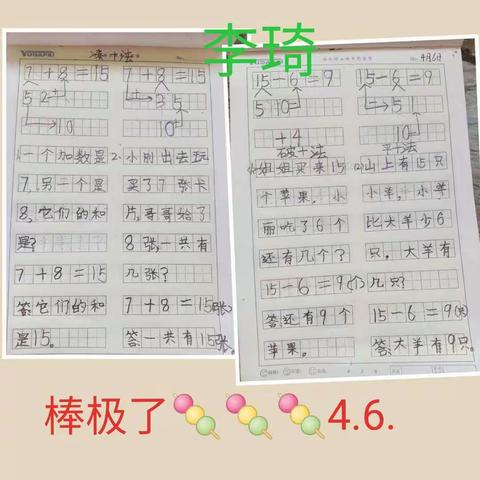 李琦
凑十法
7+8=15
5 2
10
7+8=15
3 5
10
1.一个加数是
7,另一个是
8,它们的和
是?
7+8=15
答:它们的和
是15。
2.小刚出去玩
买了7张卡
片,哥哥给了
8张,一共有
几张?
7+8=15(张)
答:一共有15张。
4月6日
15-6=9
5 10
+4
破十法
15-6=9
5 1
10
平十法
(1)姐姐买来15
个苹果。小
丽吃了6个
还有几个?
15-6=9(个)
答:还有9个
苹果。
(2)山上有15只
小羊,小羊
比大羊少6
只。大羊有
几只?
15-6=9(只)
答:大羊有9只。
棒极了 4.6.